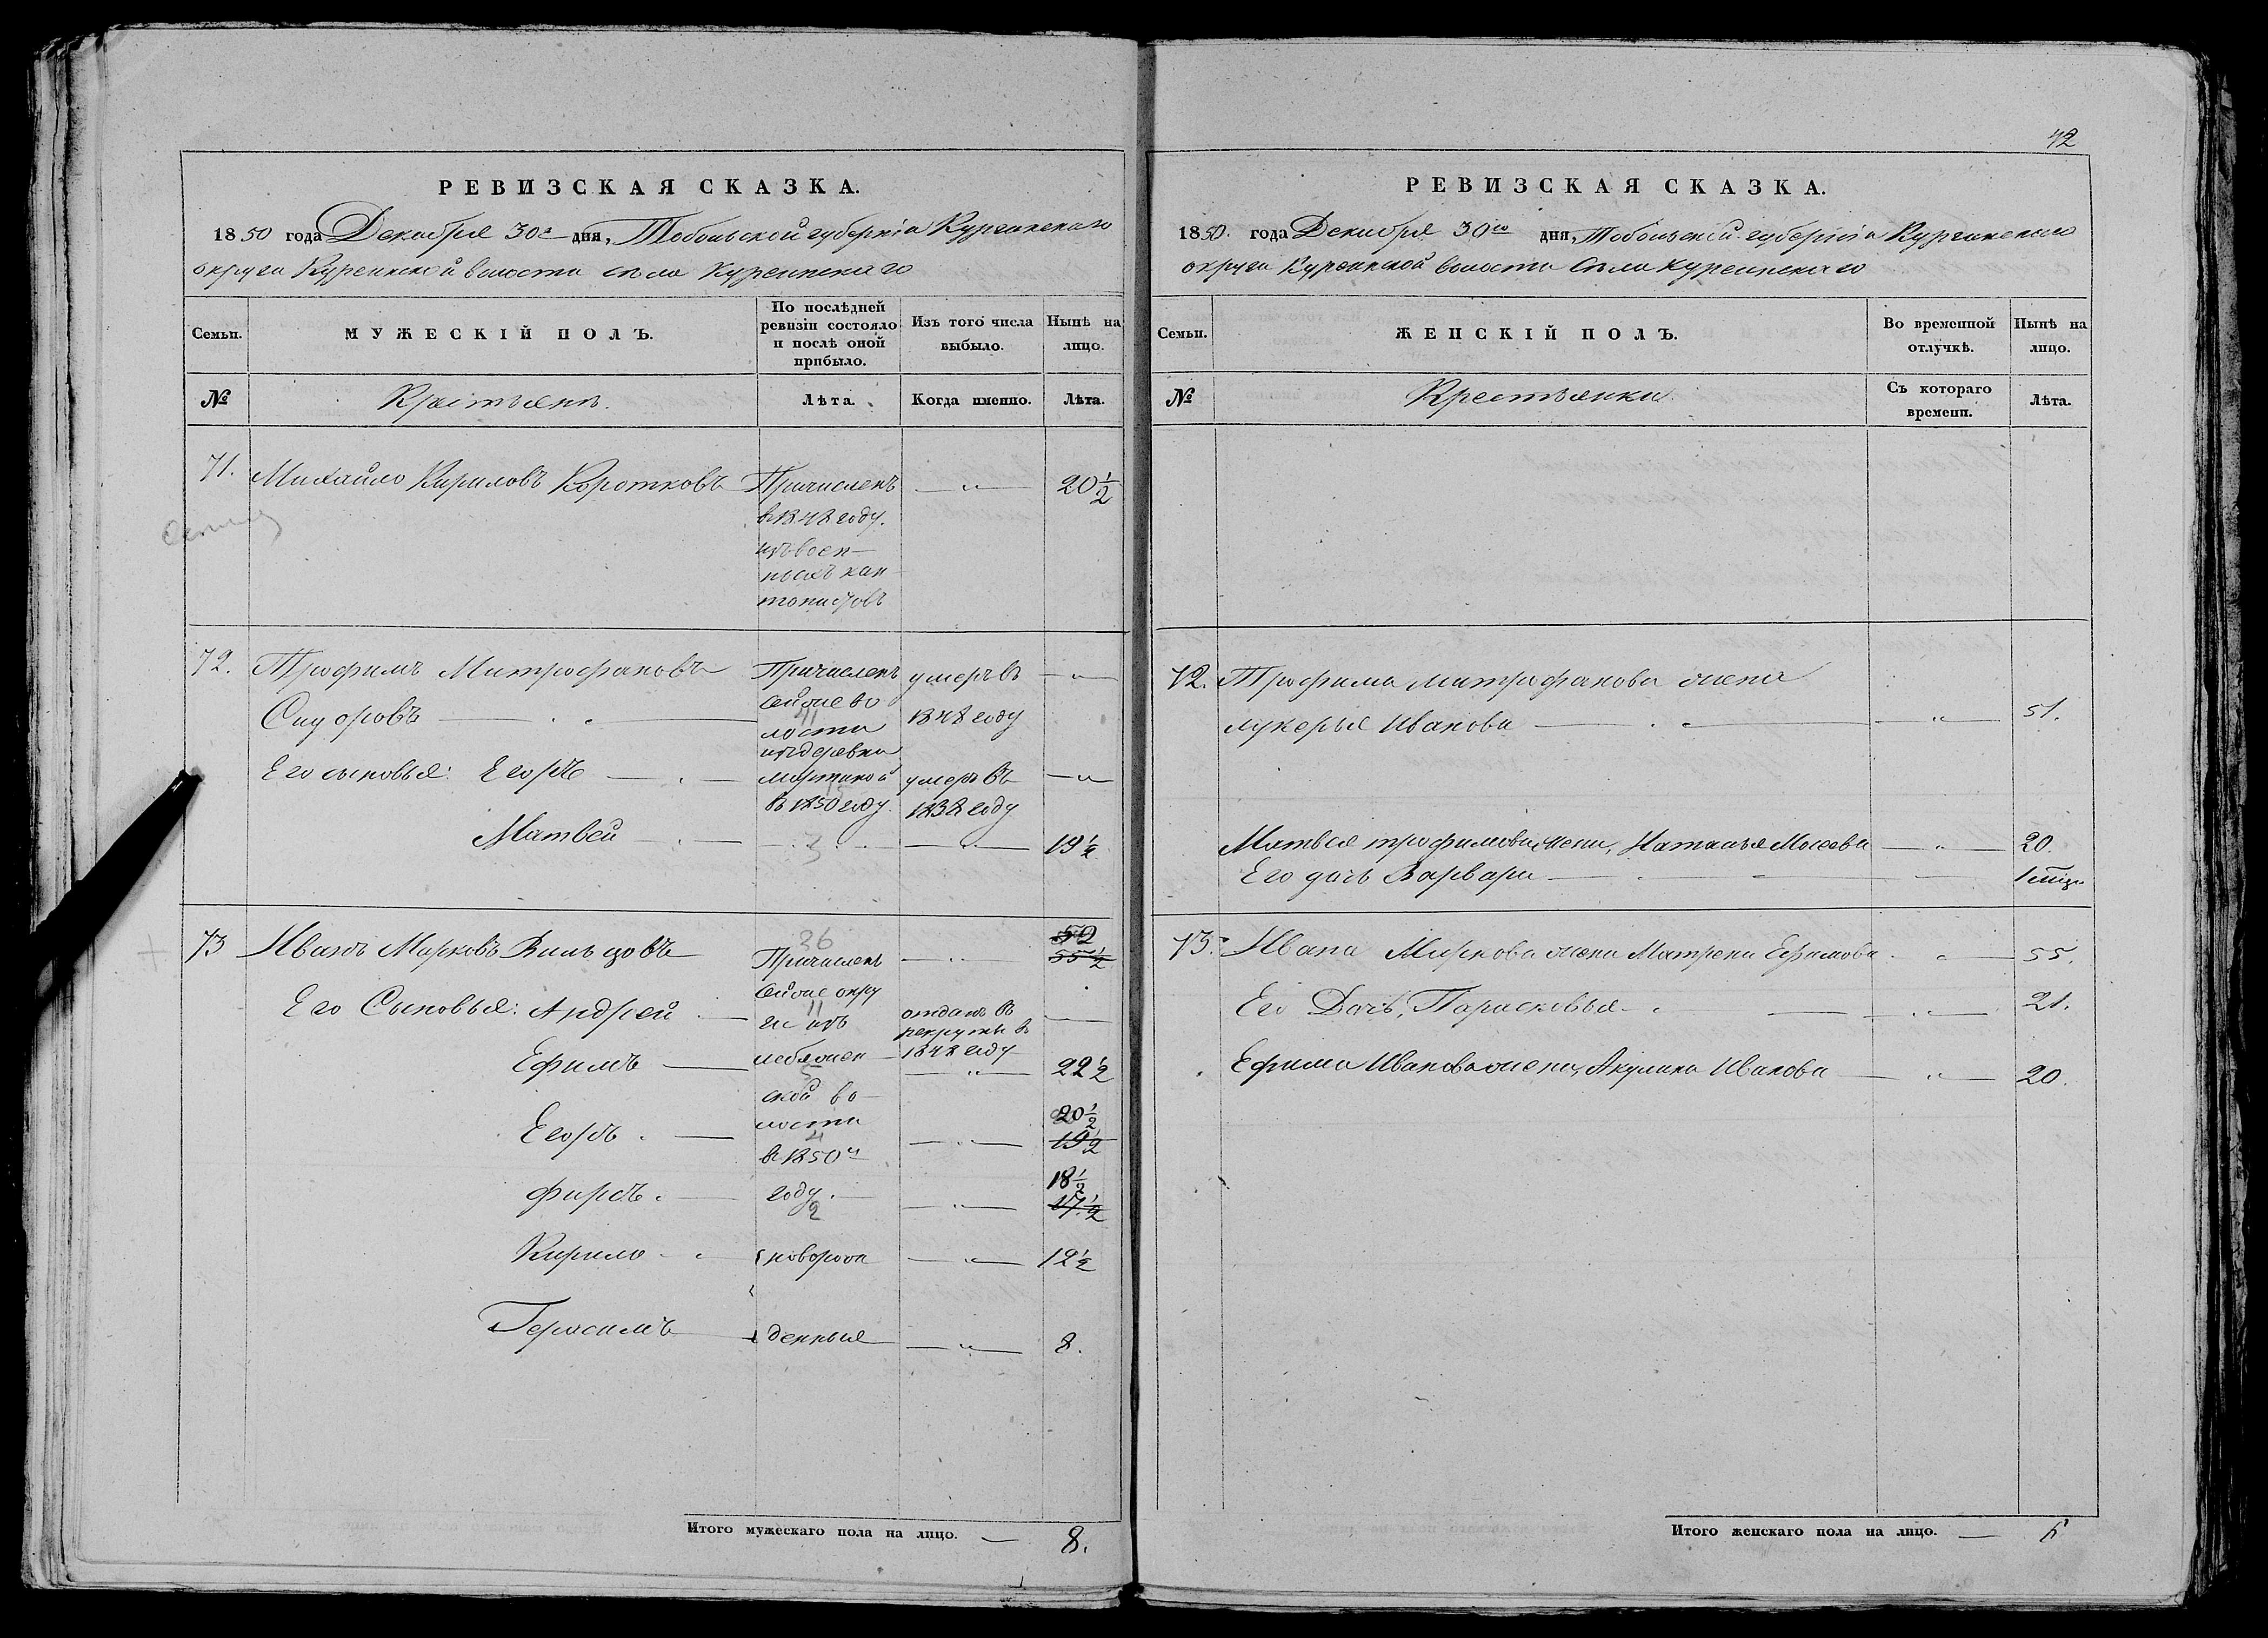 РЕВИЗСКАЯ СКАЗКА.
1850 года Декабря 30го дня, Тобольской губерніи Курганскаго
округи Куреинской волости села Куреинскаго
Семьи.
МУЖЕСКІЙ ПОЛЪ.
По послѣдней
ревизіи состояло
и послѣ оной
прибыло.
Изъ того числа
выбыло.
Нынѣ на
лицо.
№
Крестьянъ.
Лѣта.
Когда именно.
Лѣта.
71. Михайло Кириловъ Коротковъ Причисленъ — „ — 20 ½
въ 1848 году.
изъ воен-
ныхъ кан-
тонистовъ
72. Трофимъ Митрофановъ Причисленъ умеръ въ — „ —
Сидоровъ — 41 1848 году
сей же во
лости
изъ деревни
Его сыновья: Егоръ — 15 умеръ въ — „ —
въ 1850 году. 1838 году
Матвей — 3 — 19 ½
73 Иванъ Марковъ 36 — „ — 52
Причисленъ 55 ½
сей же окру
Его Сыновья: Андрей — 11 отданъ въ —
ги изъ рекруты въ
1848 году
Ефимъ — 5 — „ — 22 ½
ской во-
лости 20 ½
Егоръ — 4 — „ — 19 ½
въ 1850м
18 ½
Фирсъ — году. 2 — „ — 17 ½
Кирило — новорож — „ — 12 ½
Герасимъ — денныя — „ — 8.
Итого мужескаго пола на лицо. — 8.
42
РЕВИЗСКАЯ СКАЗКА.
1850. года Декабря 30го дня, Тобольской губерніи Курганскаго
округи Куреинской волости Села Куреинскаго
Семьи.
ЖЕНСКІЙ ПОЛЪ.
Во временной
отлучкѣ.
Нынѣ на
лицо.
№
Крестьянки
Съ котораго
времени.
Лѣта.
72. Трофима Митрофанова жена
Лукерья Иванова — „ — 51.
Матвея Трофимова жена, Наталья — „ — 20.
Его дочь Варвара — 1
73. Ивана Маркова жена Матрена Ефимова — 55.
Его Дочь, Парасковья — „ — 21.
Ефима Иванова жена, Акулина Иванова — „ — 20.
Итого женскаго пола на лицо. — 6